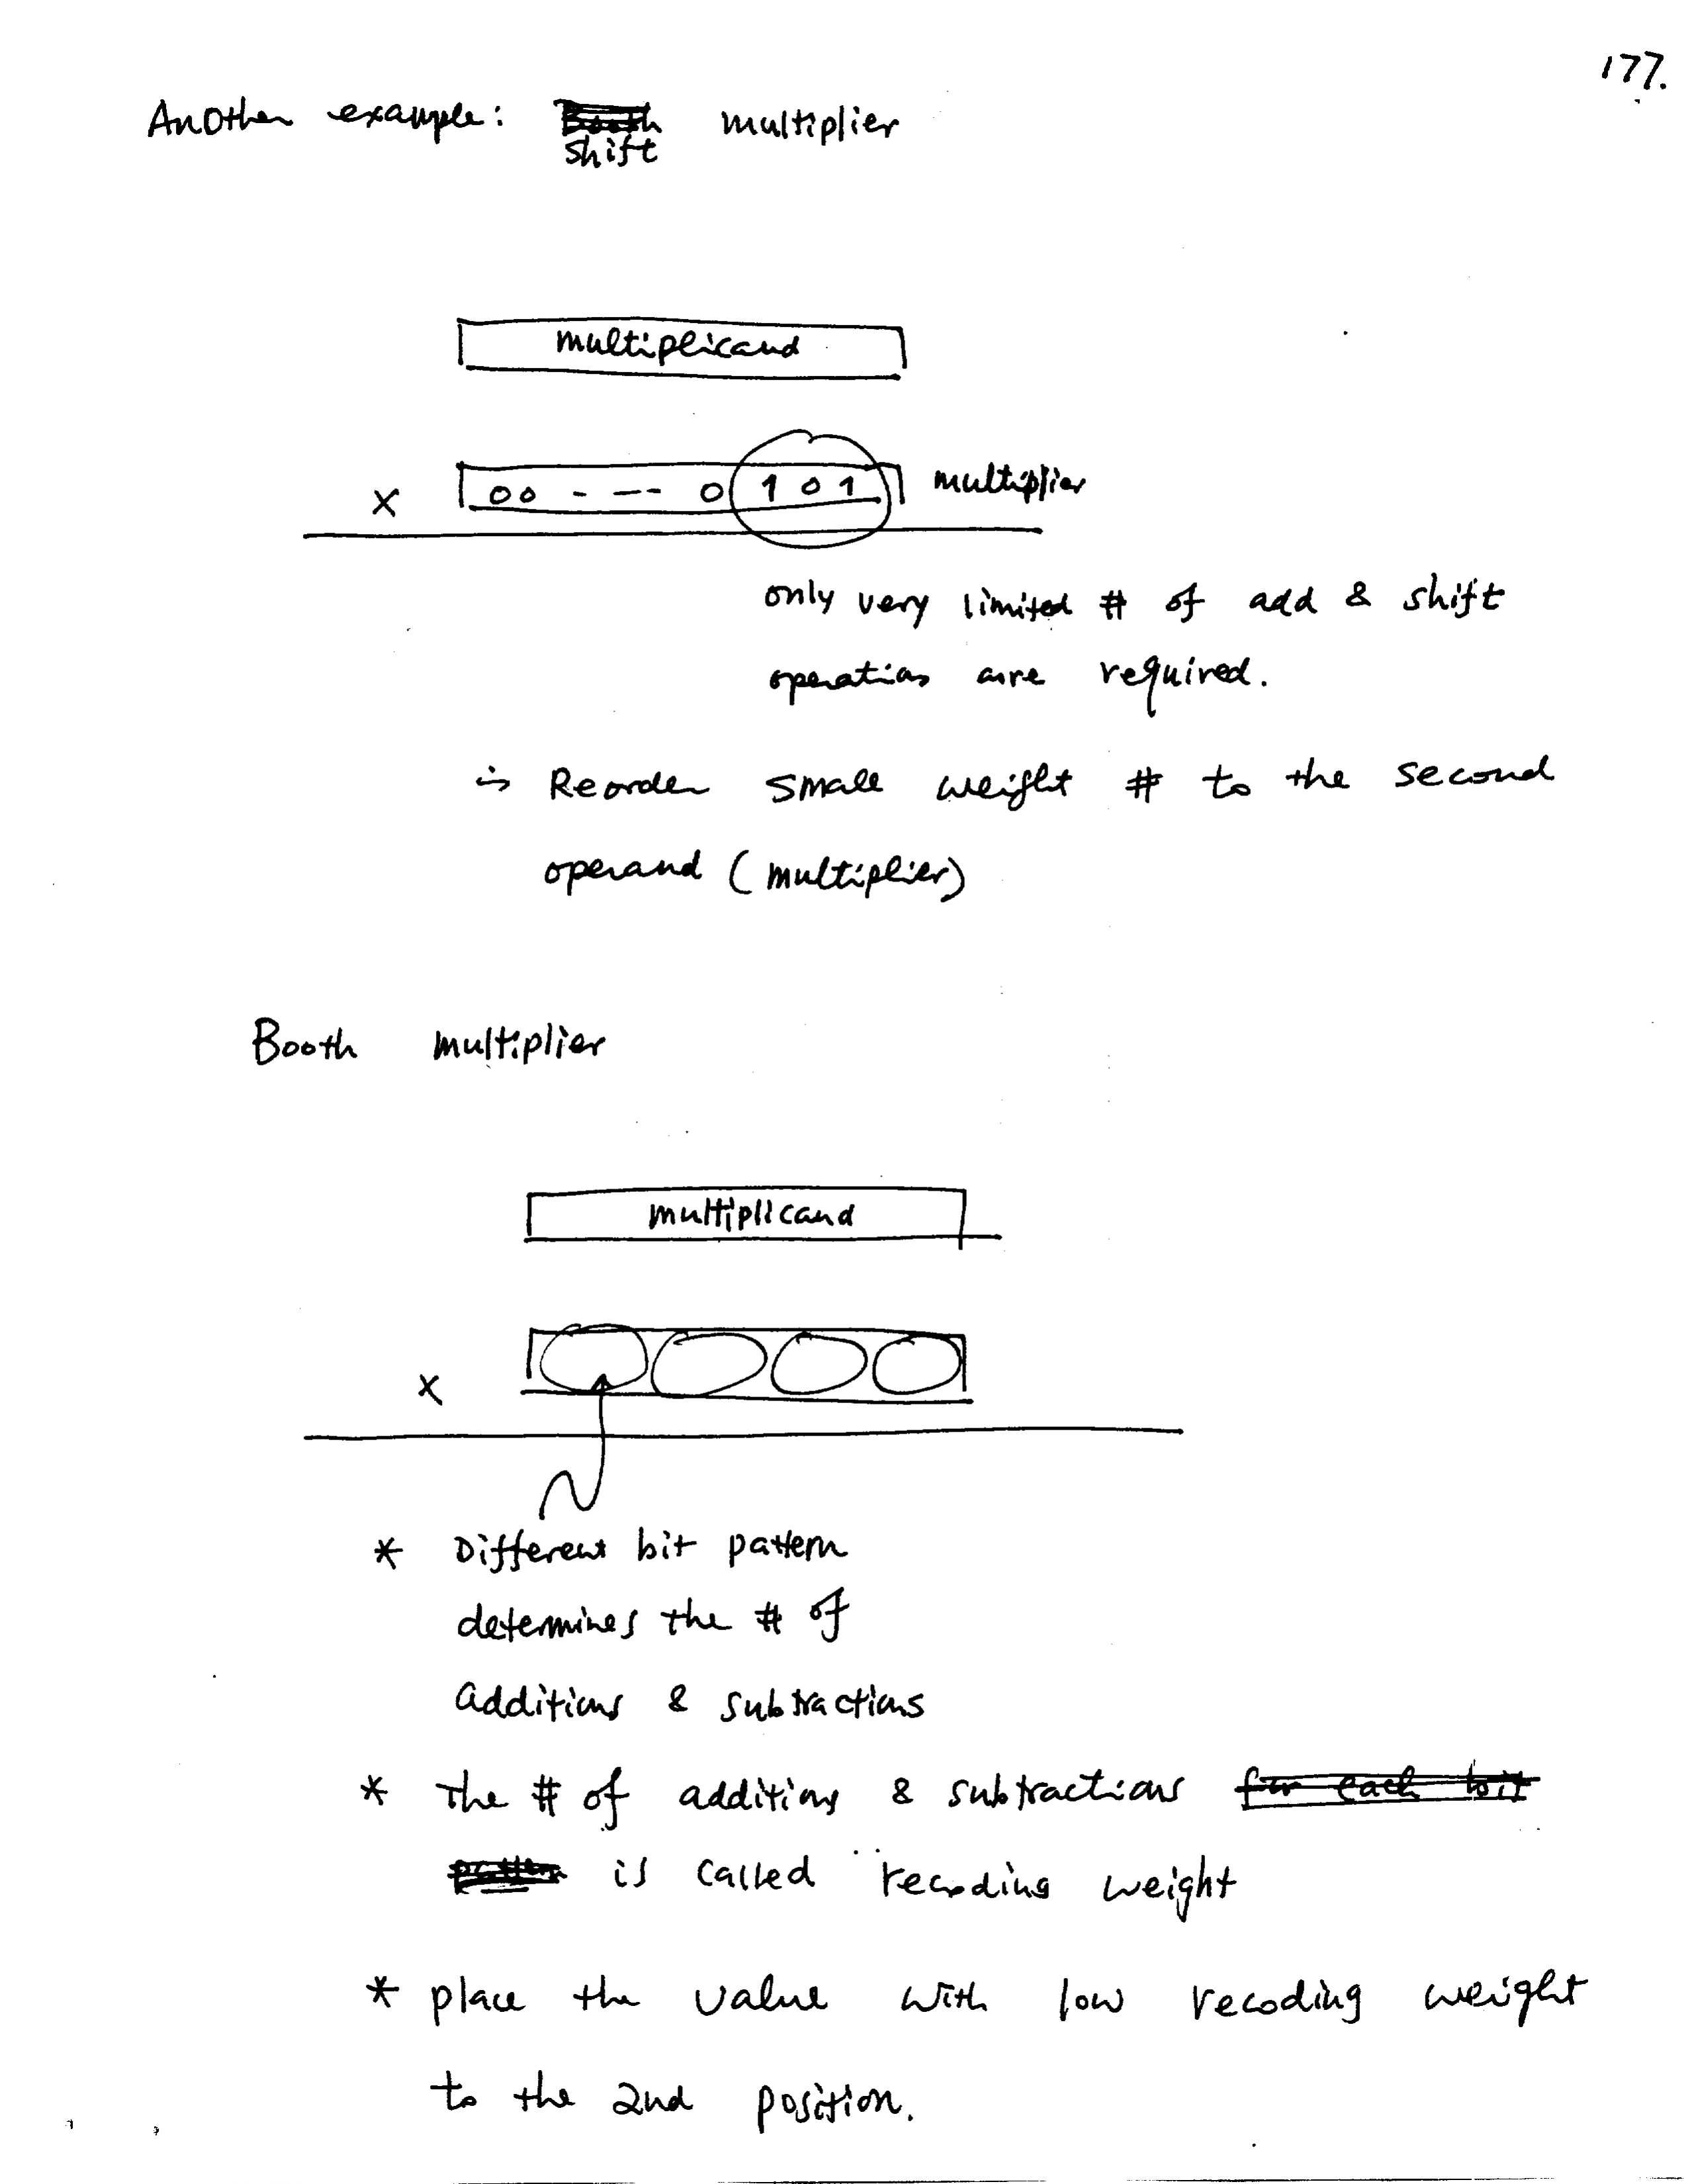 177.
Another example: Booth multiplier
shift
multiplicand
x 00 - -- - 0 1 0 1 multiplier
only very limited # of add & shift
operations are required.
⇒ Reorder small weight # to the second
operand (multiplier)
Booth multiplier
multiplicand
x
* Different bit pattern
determines the # of
additions & subtractions
* The # of additions & subtractions for each bit
pattern is called recoding weight
* place the value with low recoding weight
to the 2nd position.